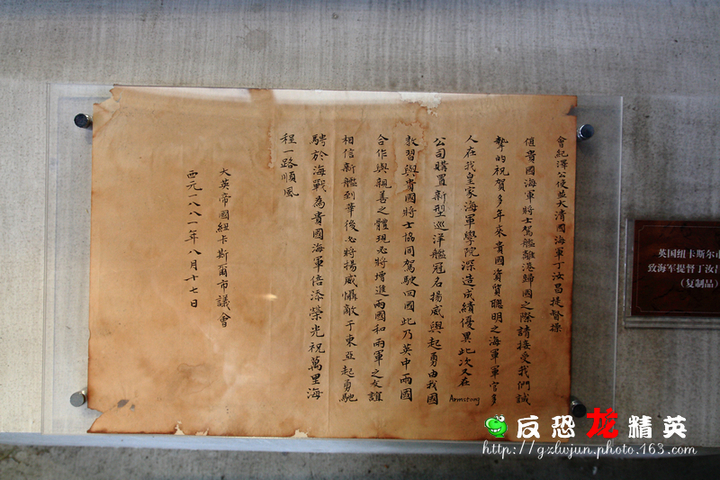 會紀澤公使並大清國海軍丁汝昌提督標
值貴國海軍將士駕艦離港歸國之際請接受我們誠
摯的祝賀多年來貴國資質聰明之海軍軍官多
人在我皇家海軍學院深造成績優異此次又在
Armstrong
公司購置新型巡洋艦冠名揚威與超勇由我國
教習與貴國將士協同駕駛回國此乃英中兩國
合作與親善之體現必將增進兩國和兩軍之友誼
相信新艦到華後必將揚威懾敵于東亞超勇馳
騁於海戰為貴國海軍倍添榮光祝萬里海
程一路順風
大英帝國紐卡斯爾市議會
西元一八八一年八月十七日
英国纽卡斯尔市
致海军提督丁汝昌
(复制品)
反恐龙精英
http://gzlwjun.photo.163.com/